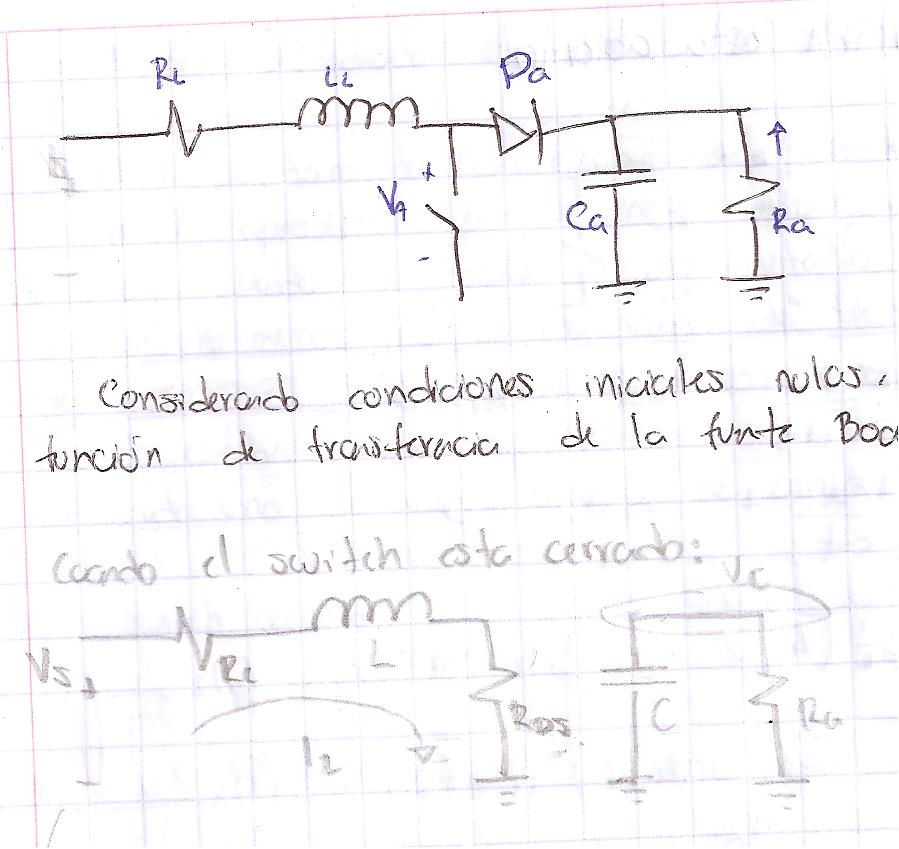 RL LL Da
Vs
V1 + -
Ca Ra
Considerando condiciones iniciales nulas,
función de transferencia de la funte Boo
Cuando el switch esta cerrado:
Vc
Vs + - RL L RDS C Ra
IL